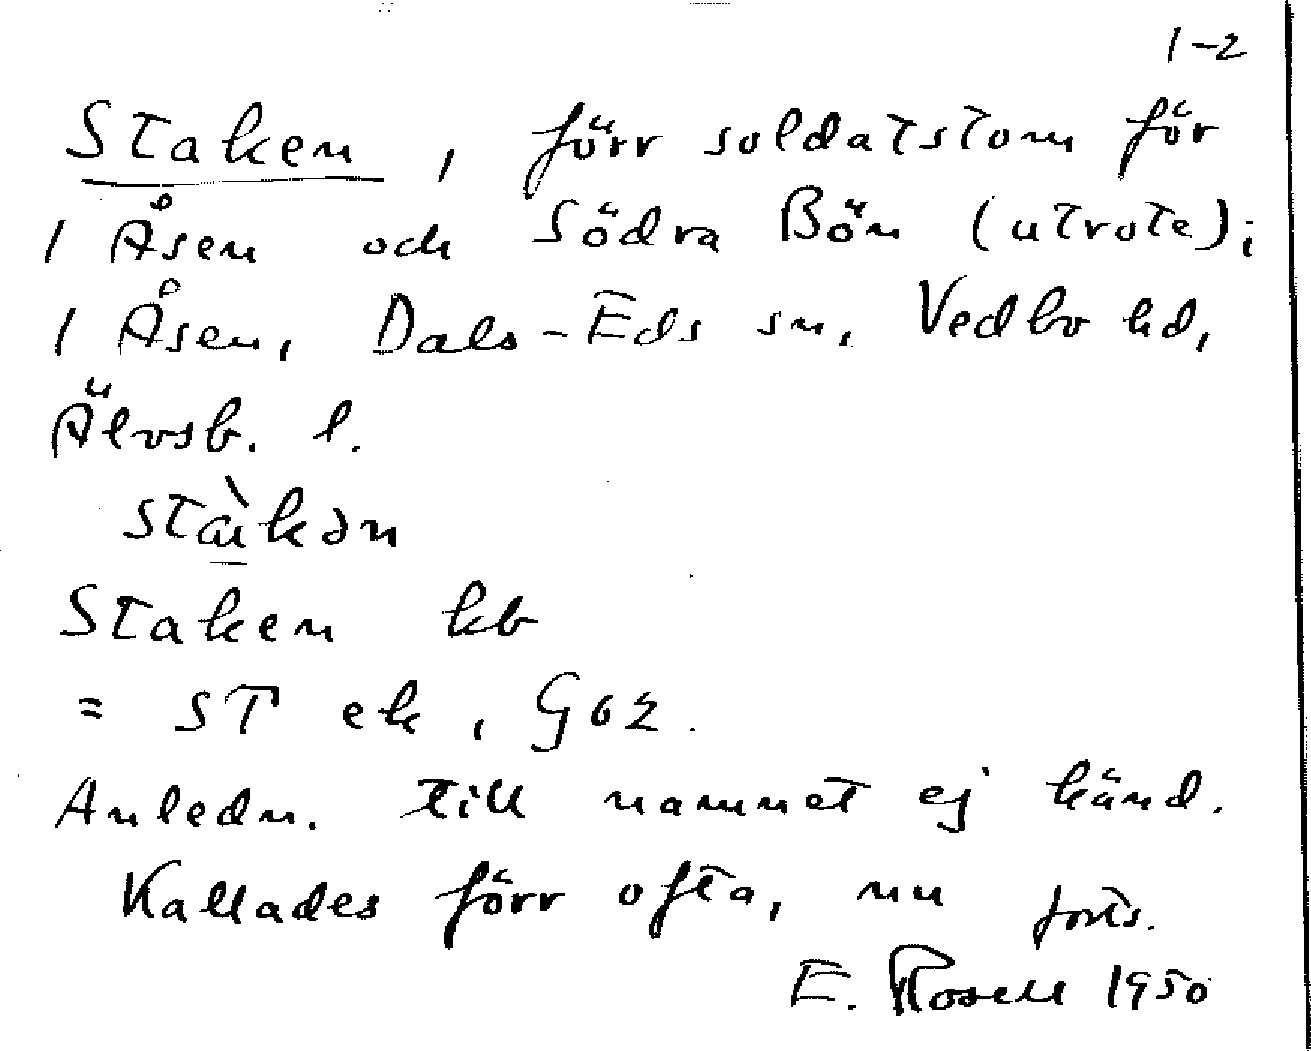 1-2
Staken, förr soldatstom för
1 Åsen och Södra Bön (utrote);
1 Åsen, Dals-Eds sn, Vedbo hd,
Älvsb. l.
stàkən
Staken kb
= ST ek, G62.
Anledn. till namnet ej känd.
Kallades förr ofta, nu forts.
E. Rosell 1950